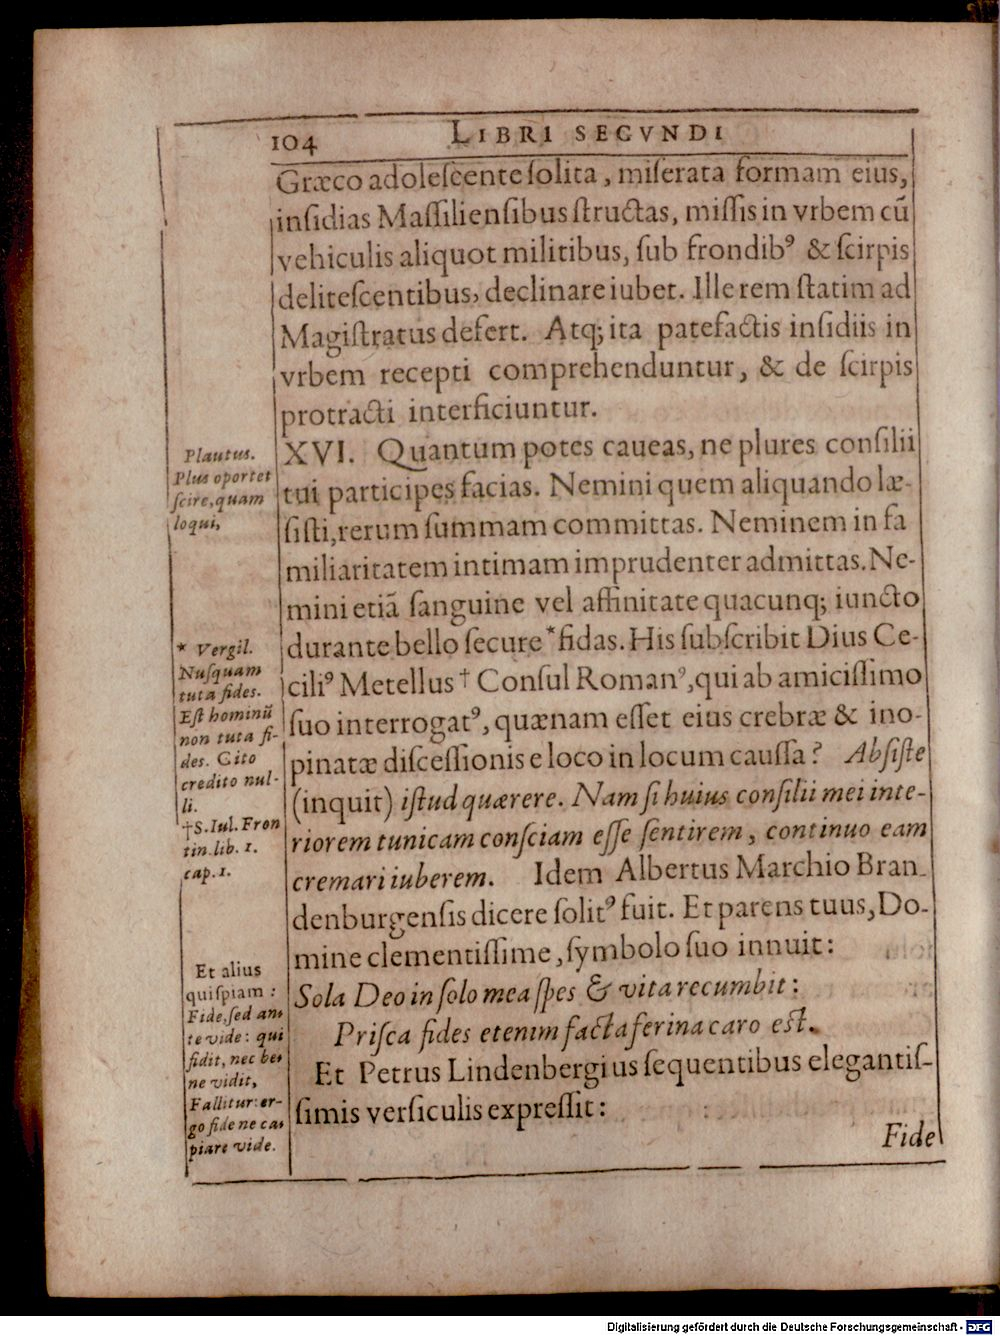 104
LIBRI SECVNDI
Græco adoleſcente ſolita, miſerata formam eius,
inſidias Maſſilienſibus ſtructas, miſſis in vrbem cū
vehiculis aliquot militibus, ſub frondibꝰ & ſcirpis
deliteſcentibus, declinare iubet. Ille rem ſtatim ad
Magiſtratus defert. Atq; ita patefactis inſidiis in
vrbem recepti comprehenduntur, & de ſcirpis
protracti interficiuntur.
XVI. Quantum potes caueas, ne plures conſilii
tui participes facias. Nemini quem aliquando læ-
ſiſti, rerum ſummam committas. Neminem in fa
miliaritatem intimam imprudenter admittas. Ne-
mini etiā ſanguine vel affinitate quacunq; iuncto
durante bello ſecure * fidas. His ſubſcribit Dius Ce-
ciliꝰ Metellus † Conſul Romanꝰ, qui ab amiciſſimo
ſuo interrogatꝰ, quænam eſſet eius crebræ & ino-
pinatæ diſceſſionis e loco in locum cauſſa? Abſiſte
(inquit) iſtud quærere. Nam ſi huius conſilii mei inte-
riorem tunicam conſciam eſſe ſentirem, continuo eam
cremari iuberem. Idem Albertus Marchio Bran-
denburgenſis dicere ſolitꝰ fuit. Et parens tuus, Do-
mine clementiſſime, ſymbolo ſuo innuit:
Sola Deo in ſolo mea ſpes & vita recumbit:
Priſca fides etenim facta ferina caro eſt.
Et Petrus Lindenbergius ſequentibus elegantiſ-
ſimis verſiculis expreſſit:
Fide
Plautus.
Plus oportet
ſcire, quam
loqui,
* Vergil.
Nuſquam
tuta fides.
Eſt hominū
non tuta fi-
des. Cito
credito nul-
li.
†S. Iul. Fron
tin. lib. 1.
cap. 1.
Et alius
quiſpiam:
Fide, ſed an-
te vide: qui
fidit, nec be-
ne vidit,
Fallitur: er-
go fide ne ca-
piare vide.
Digitalisierung gefördert durch die Deutsche Forschungsgemeinschaft - DFG